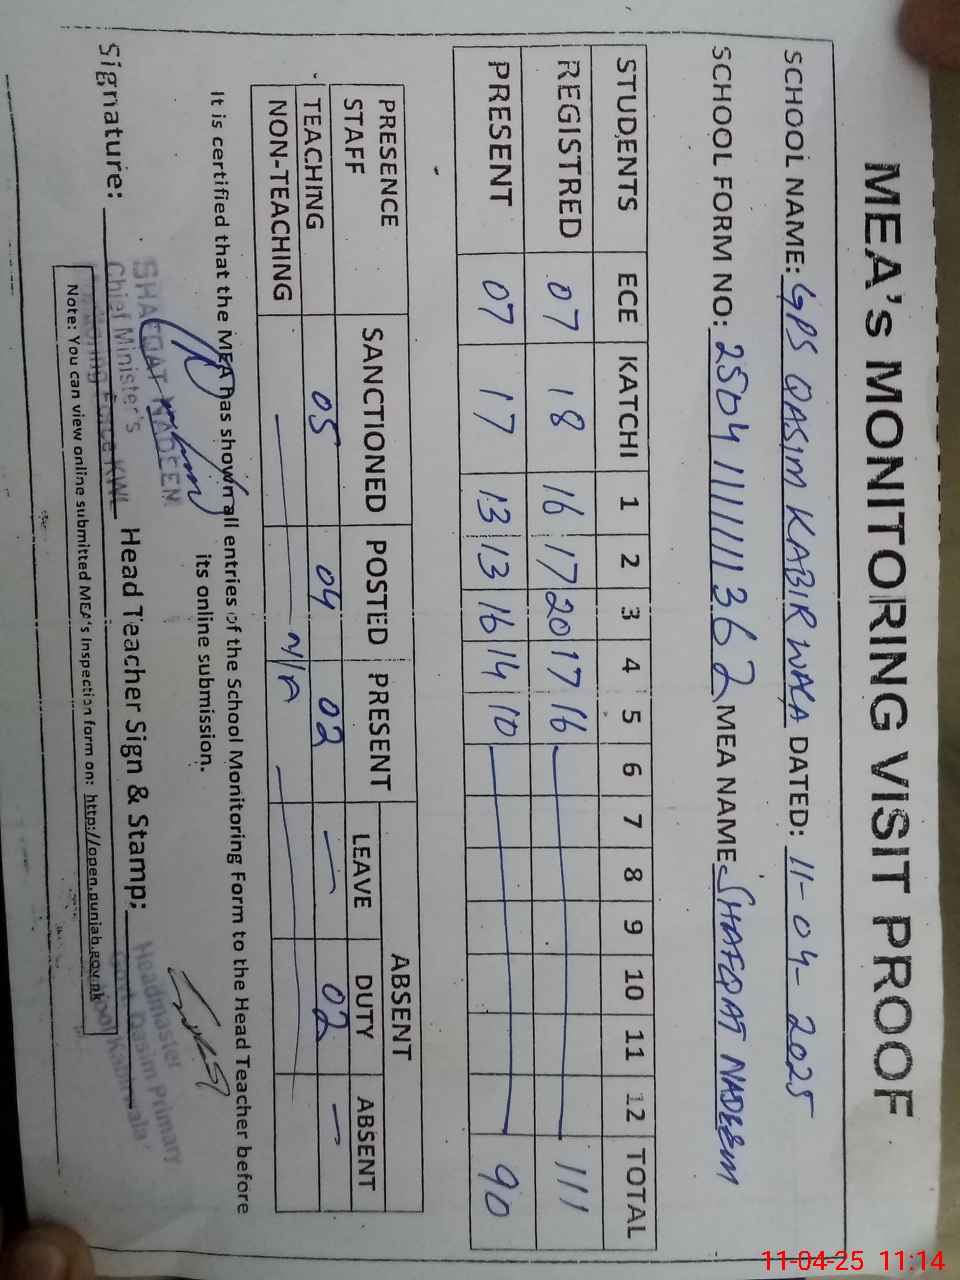 MEA's MONITORING VISIT PROOF
SCHOOL NAME: GPS QASIM KABIRWALA DATED: 11-04-2025
SCHOOL FORM NO: MEA NAME SHAFQAT NADEEM
STUDENTS ECE KATCHI 1 2 3 4 5 6 7 8 9 10 11 12 TOTAL
REGISTRED 07 18 16 17 20 17 16 111
PRESENT 07 17 13 13 16 14 10 90
PRESENCE STAFF SANCTIONED POSTED PRESENT ABSENT
LEAVE DUTY ABSENT
TEACHING 05 04 02 — 02 —
NON-TEACHING — N/A —
It is certified that the MEA has shown all entries of the School Monitoring Form to the Head Teacher before
its online submission.
Signature: Head Teacher Sign & Stamp:
SHAFQAT NADEEM
Chief Minister's
Monitoring Force KWL
Headmaster
Govt. Qasim Primary
School Kabirwala
Note: You can view online submitted MEA's Inspection form on: http://open.punjab.gov.pk
11-04-25 11:14